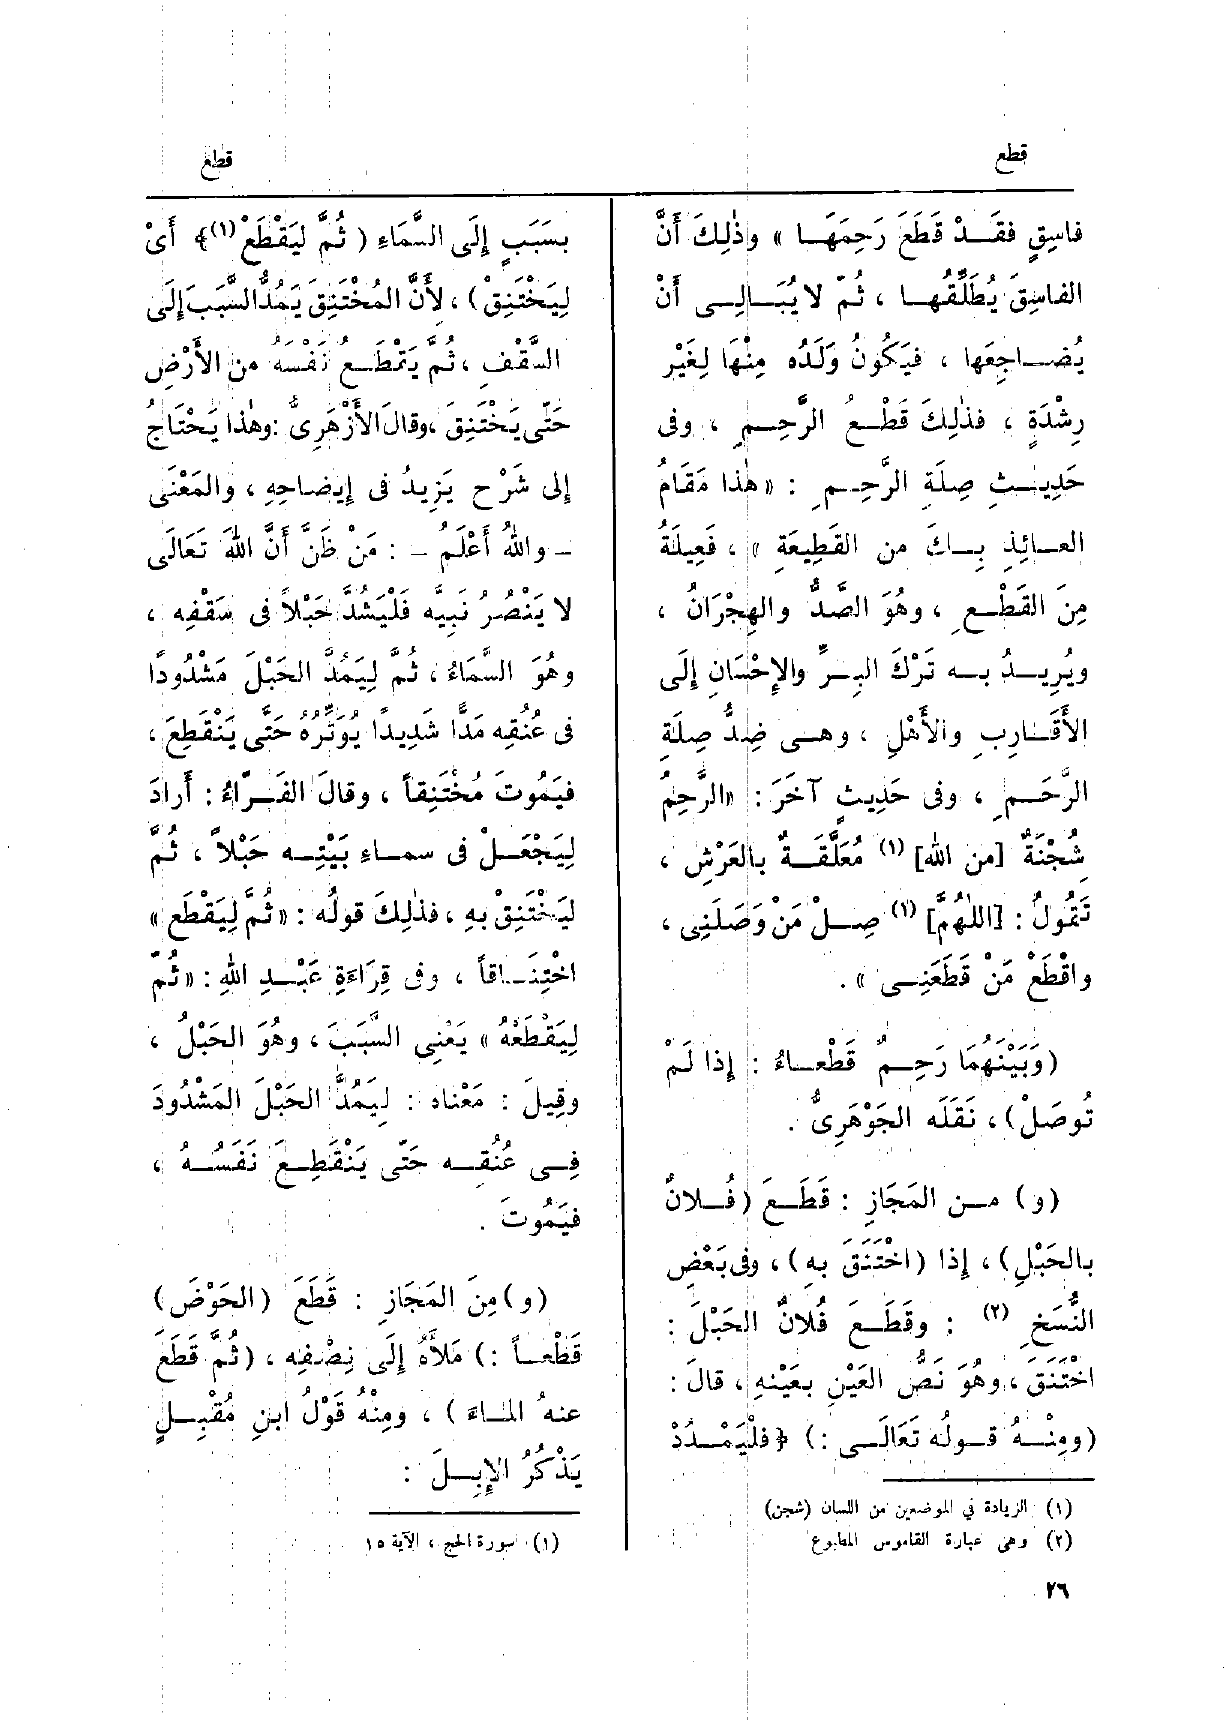 قطع
قطع
فاسِقٍ فقَدْ قَطَعَ رَحِمَهَا » وذٰلِكَ أَنَّ
الفاسِقَ يُطَلِّقُها ، ثُمّ لا يُبَالِى أَنْ
يُضاجِعَها ، فيَكُونُ وَلَدُه مِنْهَا لِغَيْرِ
رِشْدَةٍ ، فذٰلِكَ قَطْعُ الرَّحِمِ ، وفى
حَدِيثِ صِلَةِ الرَّحِمِ : «هٰذا مَقَامُ
العائِذِ بِكَ من القَطِيعَةِ » ، فَعِيلَةٌ
مِنَ القَطْعِ ، وهُوَ الصَّدُّ والهِجْرَانُ ،
ويُرِيدُ به تَرْكَ البِرِّ والإِحْسَانِ إِلَى
الأَقَارِبِ والأَهْلِ ، وهى ضِدُّ صِلَةِ
الرَّحَمِ ، وفى حَدِيثٍ آخَرَ : «الرَّحِمُ
شُجْنَةٌ [من الله] (١) مُعَلَّقَةٌ بالعَرْشِ ،
تَقُولُ : [اللهُمَّ] (١) صِلْ مَنْ وَصَلَنِى ،
واقْطَعْ مَنْ قَطَعَنِى » .
(وَبَيْنَهُمَا رَحِمٌ قَطْعاءُ : إِذا لَمْ
تُوصَلْ) ، نَقَلَه الجَوْهَرِىُّ .
(و) من المَجَازِ : قَطَعَ (فُلانٌ
بالحَبْلِ) ، إِذا (اخْتَنَقَ بِهِ) ، وفى بَعْضِ
النُّسَخِ (٢) : وقَطَعَ فُلانٌ الحَبْلَ :
اخْتَنَقَ ، وهُوَ نَصُّ العَيْنِ بِعَيْنِهِ ، قالَ :
(ومِنْهُ قولُه تَعَالَى :) ﴿ فلْيَمْدُدْ
(١) الزيادة في الموضعين من اللسان (شجن)
(٢) وهى عبارة القاموس المطبوع
٢٦
بسَبَبٍ إِلَى السَّمَاءِ ( ثُمَّ لِيَقْطَعْ (١)﴾ أَىْ
لِيَخْتَنِقْ) ، لأَنَّ المُخْتَنِقَ يَمُدُّ السَّبَبَ إِلَى
السَّقْفِ ، ثُمَّ يَقْطَعُ نَفْسَهُ من الأَرْضِ
حَتّى يَخْتَنِقَ ، وقالَ الأَزْهَرِىُّ : وهٰذا يَحْتَاجُ
إِلى شَرْحٍ يَزِيدُ فى إِيضاحِهِ ، والمَعْنَى
- واللهُ أَعْلَمُ - : مَنْ ظَنَّ أَنَّ اللهَ تَعَالَى
لا يَنْصُرُ نَبِيَّه فَلْيَشُدَّ حَبْلاً فى سَقْفِه ،
وهُوَ السَّمَاءُ ، ثُمَّ لِيَمُدَّ الحَبْلَ مَشْدُودًا
فى عُنُقِه مَدًّا شَدِيدًا يُوَتِّرُهُ حَتَّى يَنْقَطِعَ ،
فيَمُوتَ مُخْتَنِقاً ، وقالَ الفَرّاءُ : أَرادَ
لِيَجْعَلْ فى سماءِ بَيْتِه حَبْلاً ، ثُمَّ
لِيَخْتَنِقْ بِهِ ، فذٰلِكَ قولُه : «ثُمَّ لِيَقْطَع»
اخْتِنَاقاً ، وفى قِرَاءَةِ عَبْدِ اللهِ : «ثُمّ
لِيَقْطَعْهُ » يَعْنِى السَّبَبَ ، وهُوَ الحَبْلُ ،
وقِيلَ : مَعْناه : لِيَمُدَّ الحَبْلَ المَشْدُودَ
فِى عُنُقِه حَتّى يَنْقَطِعَ نَفَسُهُ ،
فيَمُوتَ .
(و) مِنَ المَجَازِ : قَطَعَ (الحَوْضَ)
قَطْعاً :) مَلأَهُ إِلَى نِصْفِه ، (ثُمَّ قَطَعَ
عنهُ الماءَ ) ، ومِنْهُ قَوْلُ ابنِ مُقْبِلٍ
يَذْكُرُ الإِبِلَ :
(١) سورة الحج ، الآية ١٥